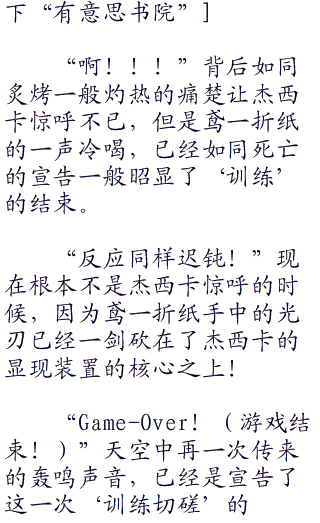 下“有意思书院”]
“啊！！！”背后如同
炙烤一般灼热的痛楚让杰西
卡惊呼不已，但是鸢一折纸
的一声冷喝，已经如同死亡
的宣告一般昭显了‘训练’
的结束。
“反应同样迟钝！”现
在根本不是杰西卡惊呼的时
候，因为鸢一折纸手中的光
刃已经一剑砍在了杰西卡的
显现装置的核心之上！
“Game-Over！（游戏结
束！）”天空中再一次传来
的轰鸣声音，已经是宣告了
这一次‘训练切磋’的